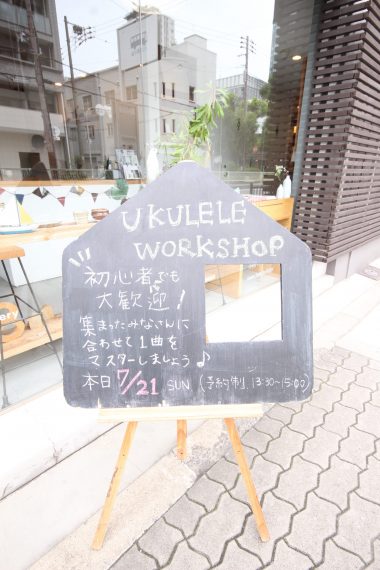 UKULELE
WORKSHOP
初心者でも
大歓迎!
集まったみなさんに
合わせて1曲を
マスターしましょう♪
本日 7/21 SUN (予約制 13:30~15:00)